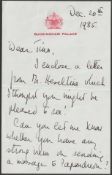 BUCKINGHAM PALACE
Dec. 20th
1985.
Dear
I enclose a letter
from Dr. which
I thought you might be
pleased to see!
Can you let me know
whether you have any
strong views on sending
a message to